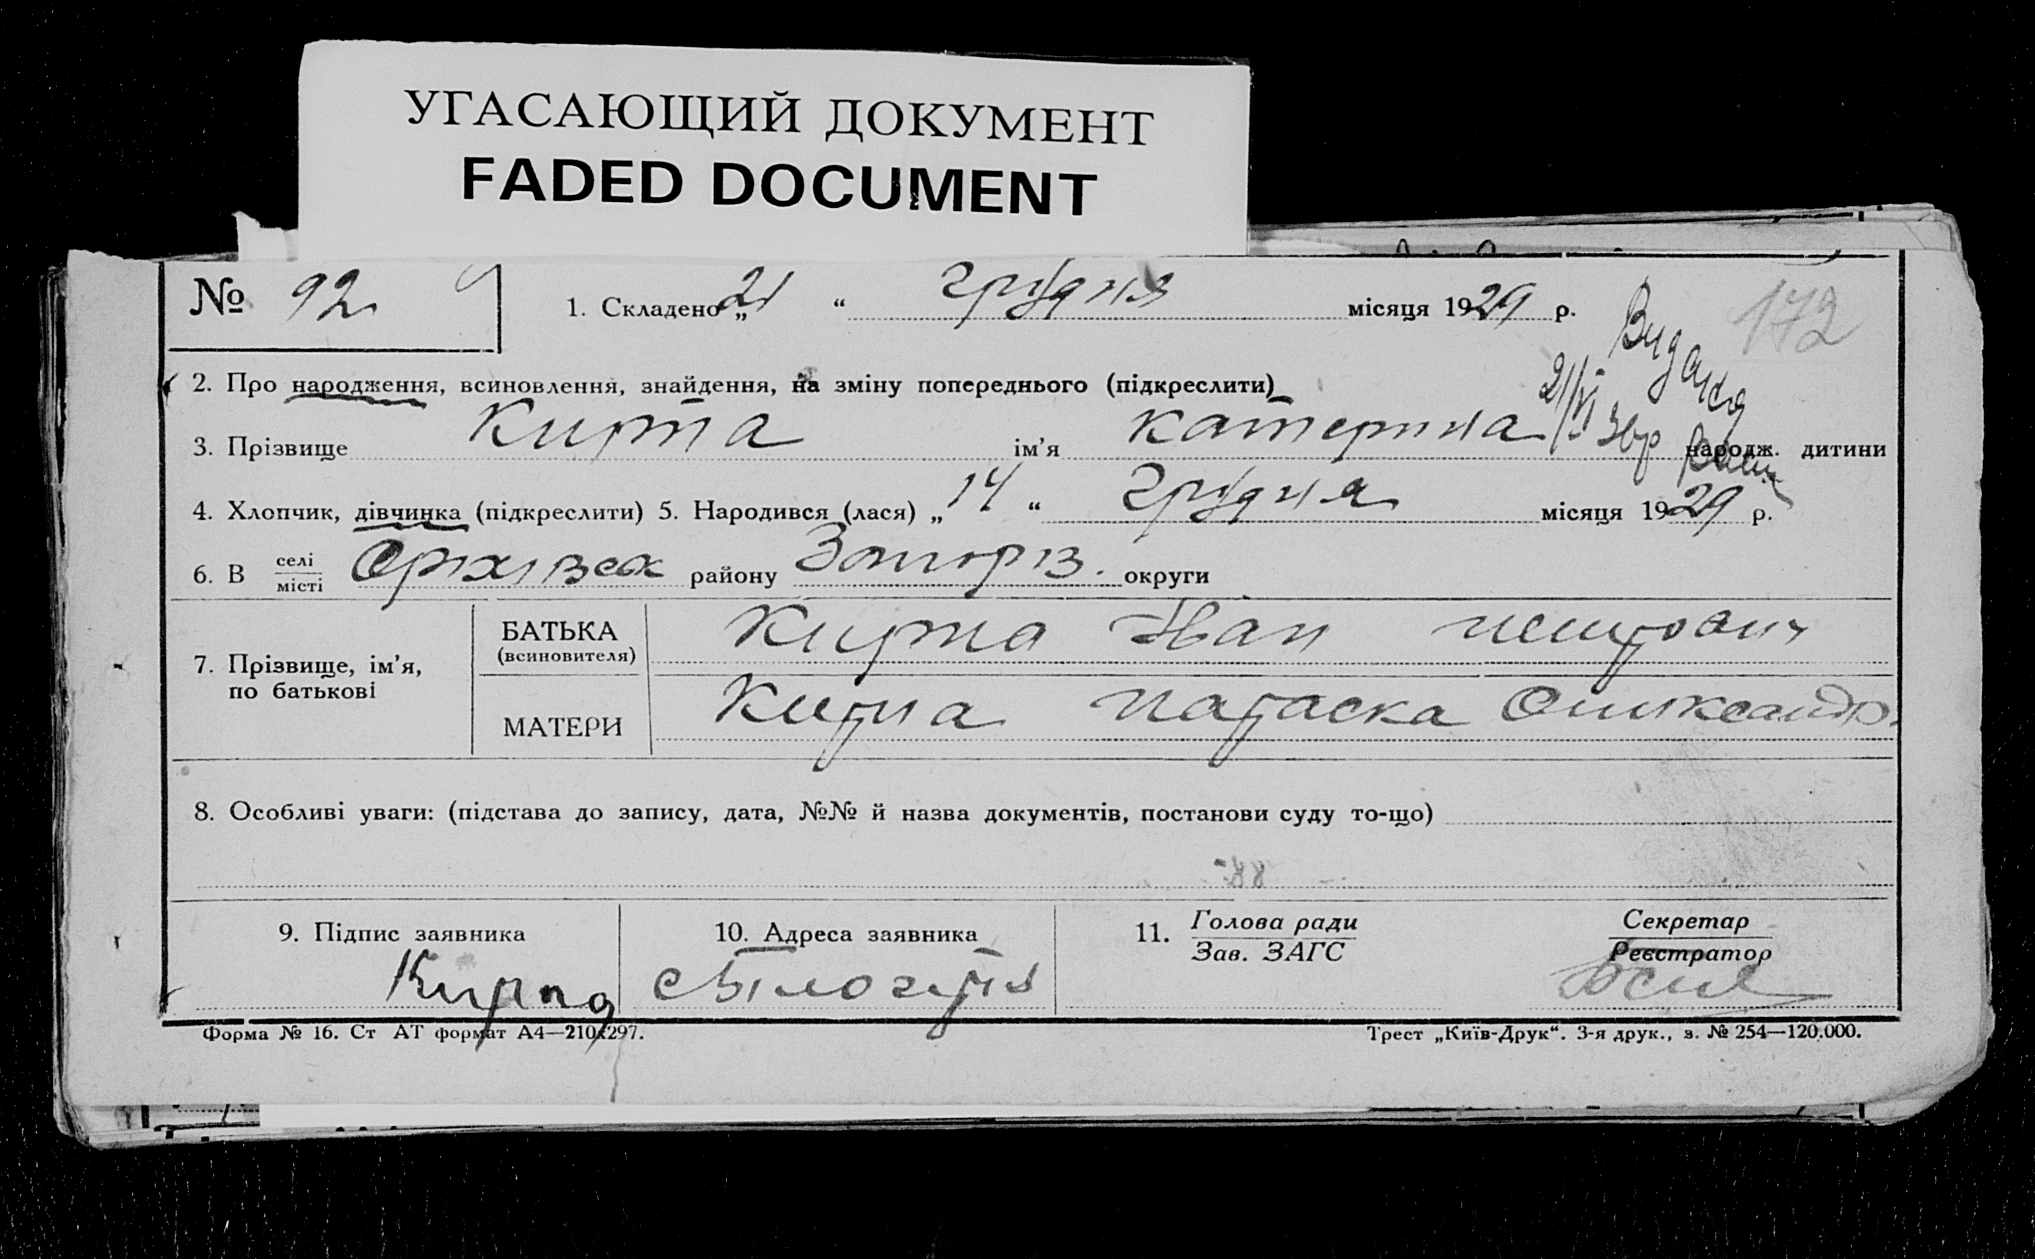 УГАСАЮЩИЙ ДОКУМЕНТ
FADED DOCUMENT
№ 92
1. Складено „21“ грудня місяця 1929 р.
172
2. Про народження, всиновлення, знайдення, на зміну попереднього (підкреслити)
3. Прізвище Кирпа ім'я катерина народж. дитини
4. Хлопчик, дівчинка (підкреслити) 5. Народився (лася) „14“ грудня місяця 1929 р.
6. В селі/місті Оріхівськ району Запоріз. округи
7. Прізвище, ім'я, по батькові
БАТЬКА (всиновителя) Кирпа Іван петрович
МАТЕРИ Кирпа параска
8. Особливі уваги: (підстава до запису, дата, №№ й назва документів, постанови суду то-що)
9. Підпис заявника
Кирпа
10. Адреса заявника
11. Голова ради
Зав. ЗАГС
Секретар
Реєстратор
Форма № 16. Ст АТ формат А4—210х297.
Трест „Київ-Друк“. 3-я друк., з. № 254—120.000.